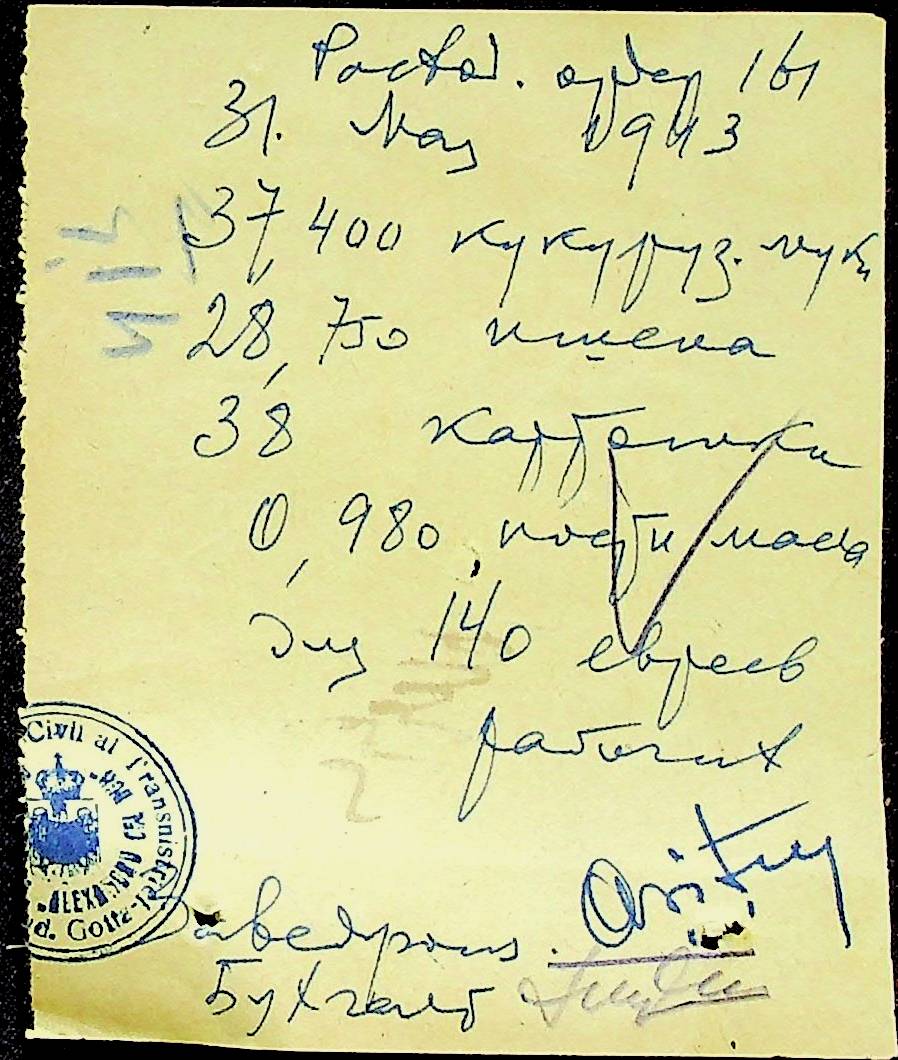 Расход. ордер 161
31. Мая 1943
37,400 кукуруз. муки
28,750 пшена
38 картошки
0,980 пост масла
для 140 евреев
рабочих
Civil al Transnistriei
Jud. Golta
Заведующ.
Бухгалт